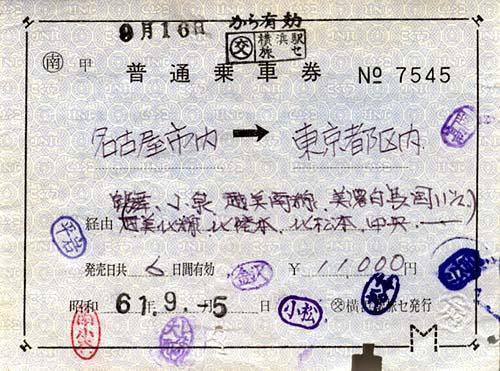 9月16日から有効
㊋ 横浜駅旅セ
㊊ 甲 普通乗車券 № 7545
名古屋市内 ➡ 東京都区内
鶴舞、小泉、越美南線、美濃白鳥
経由 越美北線、北陸本、北松本、中央
発売日共 6 日間有効 ¥11,000円
昭和 61年 9.-5 日 横浜駅旅セ発行
金沢
小松